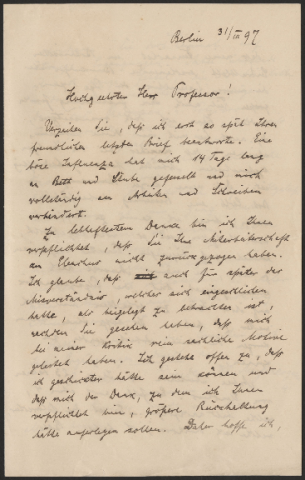 Berlin 31/III 97
Hochgeehrter Herr Professor!
Verzeihen Sie, daß ich erst so spät Ihren
freundlichen letzten Brief beantworte. Eine
böse Influenza hat mich 14 Tage lang
an Bett und Stube gefesselt und mich
vollständig am Arbeiten und Schreiben
verhindert.
Zu lebhaftestem Danke bin ich Ihnen
verpflichtet, daß Sie Ihre Mitarbeiterschaft
an nicht zurückgezogen haben.
Ich glaube, daß auch für später der
Misverständnis, welcher sich eingeschlichen
hatte, als beigelegt zu betrachten ist,
nachdem Sie gesehen haben, daß mich
bei meiner Kritik rein sachliche Motive
geleitet haben. Ich gestehe offen zu, daß
ich geschickter hätte sein können und
daß mich der Dank, zu dem ich Ihnen
verpflichtet bin, größere Rückhaltung
hätte auferlegen sollen. Daher hoffe ich,